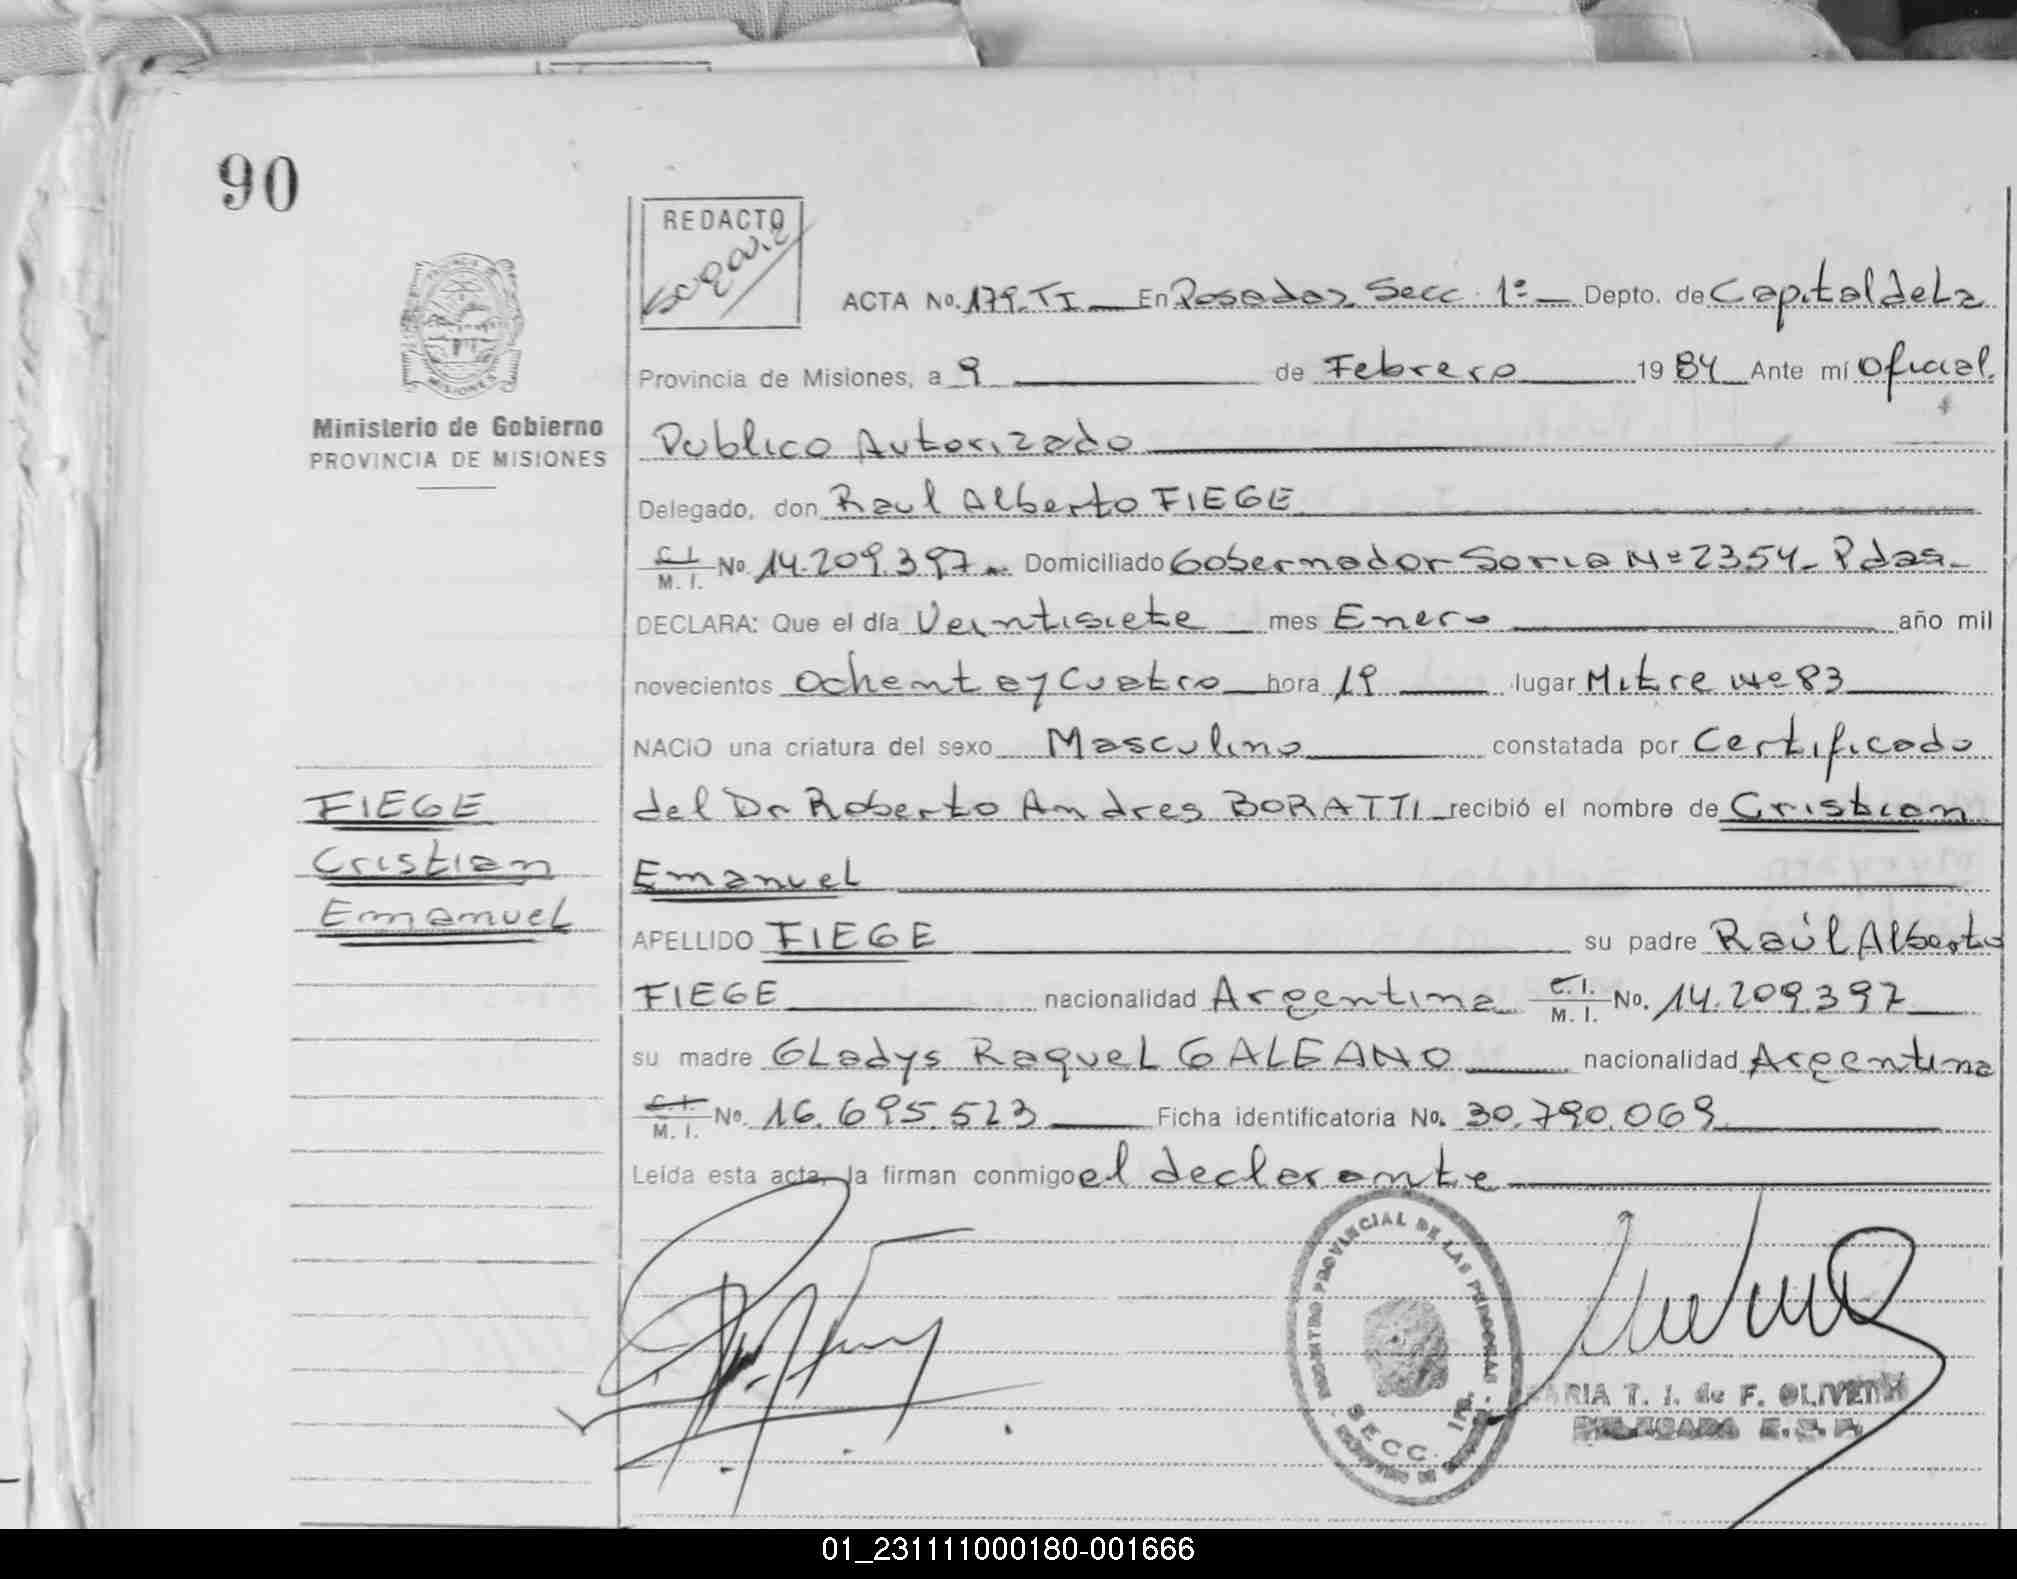 90
REDACTO
ACTA No. 179. TI En Posadas Secc. 1º Depto. de Capital de La
Provincia de Misiones, a 9 de Febrero 1984 Ante mí Oficial
Ministerio de Gobierno
PROVINCIA DE MISIONES
Publico Autorizado
Delegado, don Raul Alberto FIEGE
C. I. M. I. No. 14.209.397 Domiciliado Gobernador Soria Nº 2354 - Pdas -
DECLARA: Que el día Veintisiete mes Enero año mil
novecientos Ochenta y Cuatro hora 19 lugar Mitre Nº 83
NACIO una criatura del sexo Masculino constatada por Certificado
del Dr Roberto Andres BORATTI recibió el nombre de Cristian
Emanuel
FIEGE
Cristian
Emanuel
APELLIDO FIEGE su padre Raúl Alberto
FIEGE nacionalidad Argentina C. I. M. I. No. 14.209.397
su madre Gladys Raquel GALEANO nacionalidad Argentina
C. I. M. I. No. 16.695.523 Ficha identificatoria No. 30.790.069
Leída esta acta, la firman conmigo el declarante
REGISTRO PROVINCIAL DE LAS PERSONAS
SECC. 1ra.
MARIA T. I. de F. OLIVETTI
DELEGADA
MISIONES
01_231111000180-001666